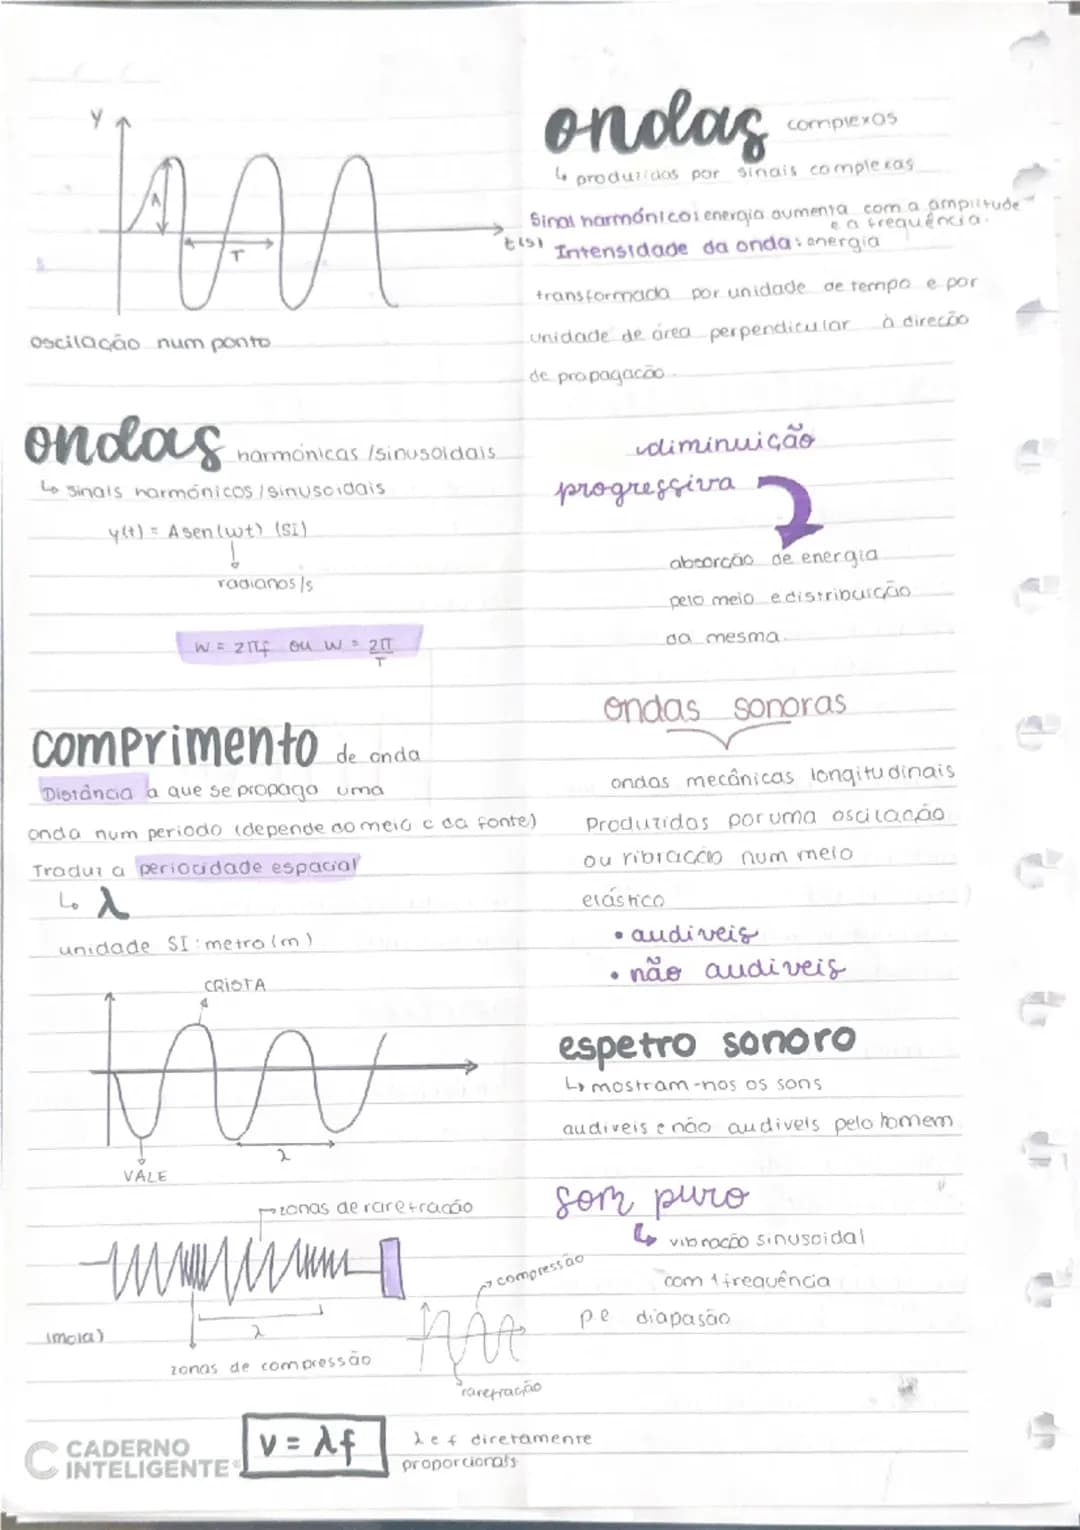 Y
A
T
t(s)
oscilação num ponto
ondas harmónicas /sinusoidais
↳ sinais harmónicos / sinusoidais
y(t) = A sen (wt) (SI)
radianos/s
W = 2πf ou W = 2π/T
comprimento de onda
Distância a que se propaga uma
onda num periodo (depende do meio e da fonte)
Traduz a periocidade espacial
↳ λ
unidade SI: metro (m)
CRISTA
λ
VALE
zonas de rarefração
(mola)
λ
zonas de compressão
compressão
rarefração
v = λf
λ e f diretamente
proporcionais
CADERNO
INTELIGENTE
ondas complexas
↳ produzidas por sinais complexas
Sinal harmónico: energia aumenta com a amplitude
e a frequência.
Intensidade da onda: energia
transformada por unidade de tempo e por
unidade de área perpendicular à direcão
de propagacão.
diminuição
progressiva
absorção de energia
pelo meio e distribuição
da mesma.
ondas sonoras
ondas mecânicas longitudinais
Produzidas por uma oscilacão
ou vibracão num meio
elástico
• audiveis
• não audiveis
espetro sonoro
↳ mostram-nos os sons
audiveis e não audiveis pelo homem
som puro
↳ vibracão sinusoidal
com 1 frequência
p.e diapasão